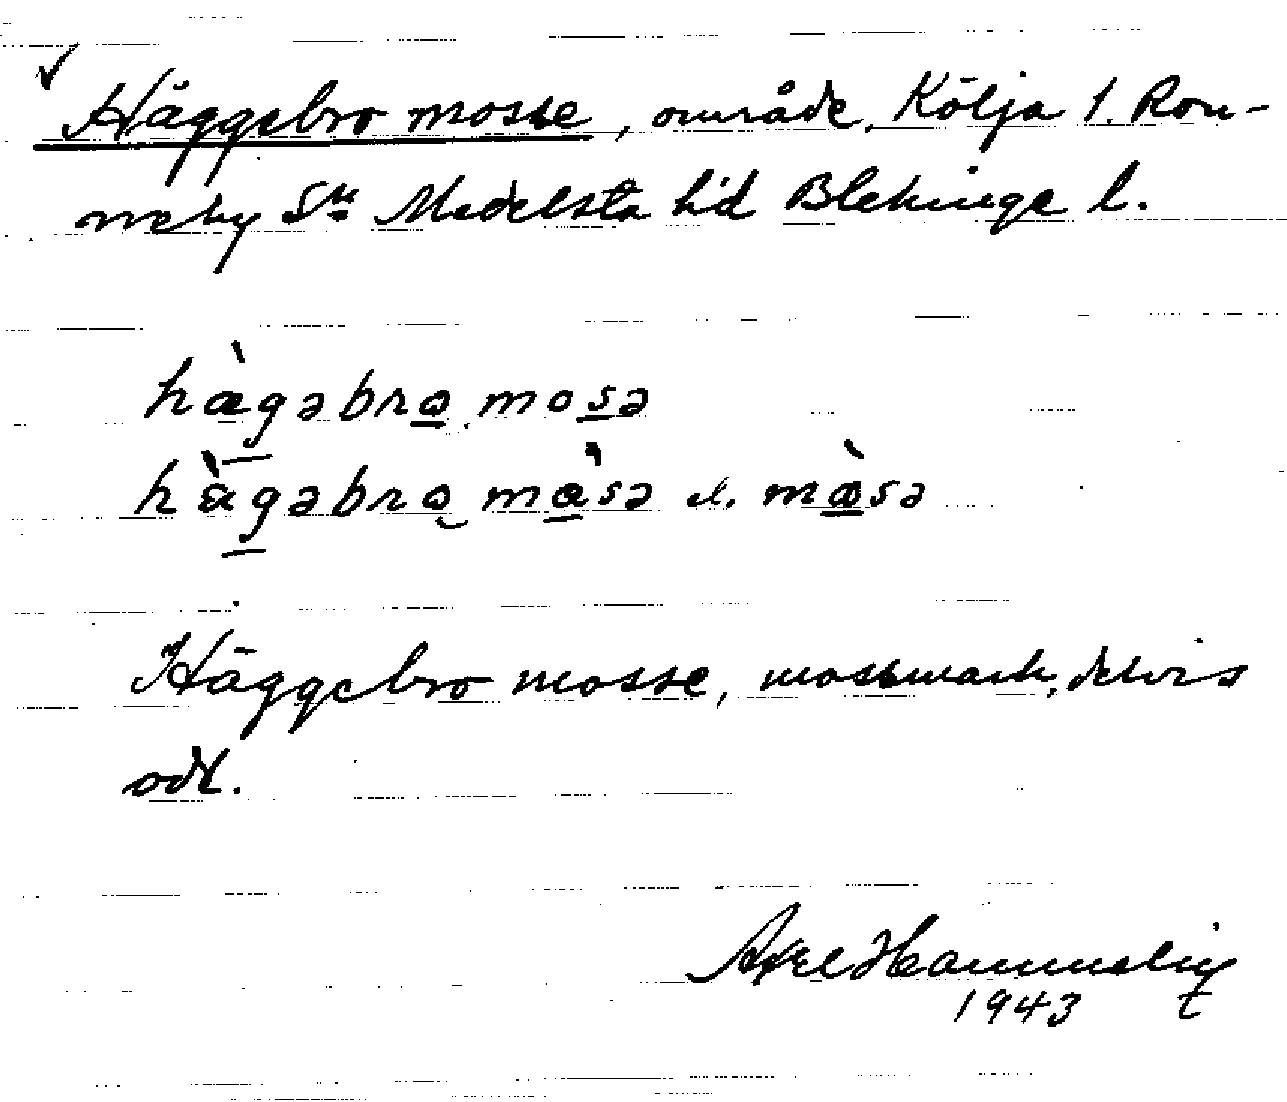 Häggebro mosse, område, Kölja 1. Ron-
neby Sn Medelsta hd Blekinge l.
hæ̀gəbro mosə
hàgəbro màsə el. mæ̀sə
Häggebro mosse, mossmark, delvis
odl.
Axel
1943